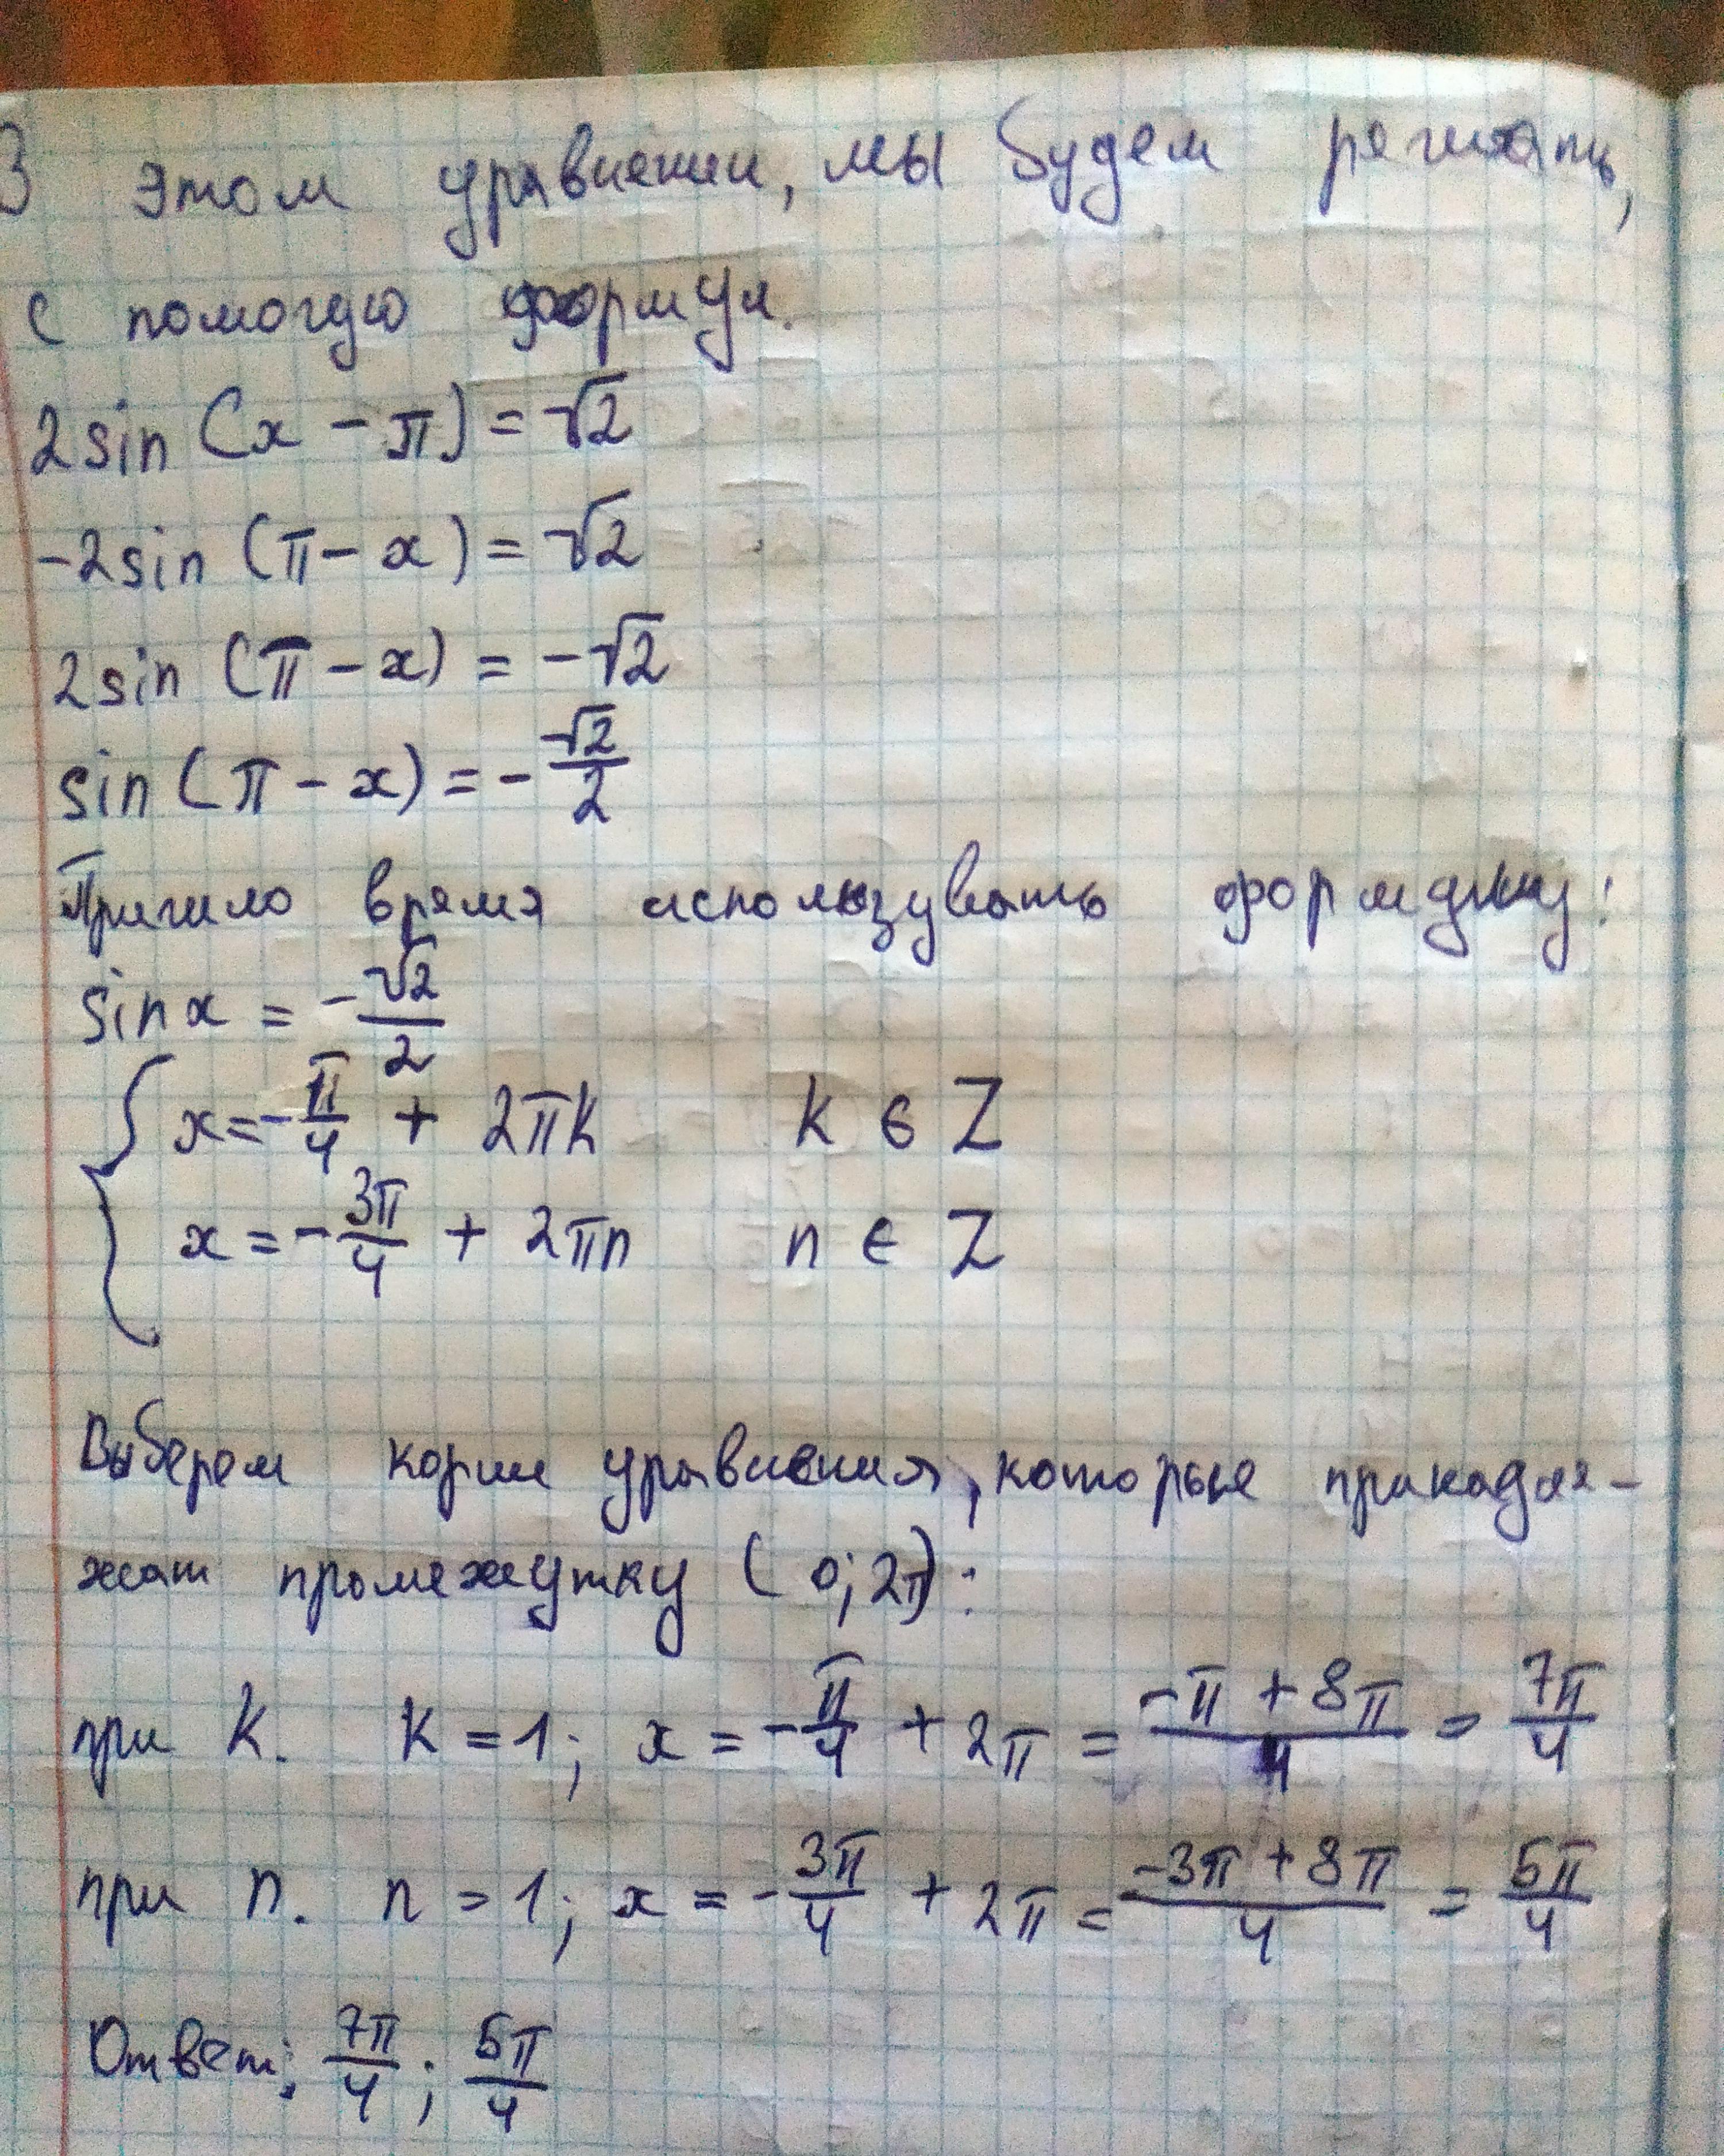 В этом уравнении, мы будем решать,
с помогую формул.
2sin (x - π) = √2
-2sin (π - x) = √2
2sin (π - x) = -√2
sin (π - x) = -√2/2
Пришло время использувать формулу:
sin x = -√2/2
{ x = -π/4 + 2πk k ∈ Z
x = -3π/4 + 2πn n ∈ Z
Выберем корни уравнения, которые принадле-
жат промежутку (0; 2π):
при k. k = 1; x = -π/4 + 2π = (-π + 8π)/4 = 7π/4
при n. n = 1; x = -3π/4 + 2π = (-3π + 8π)/4 = 5π/4
Ответ: 7π/4 ; 5π/4